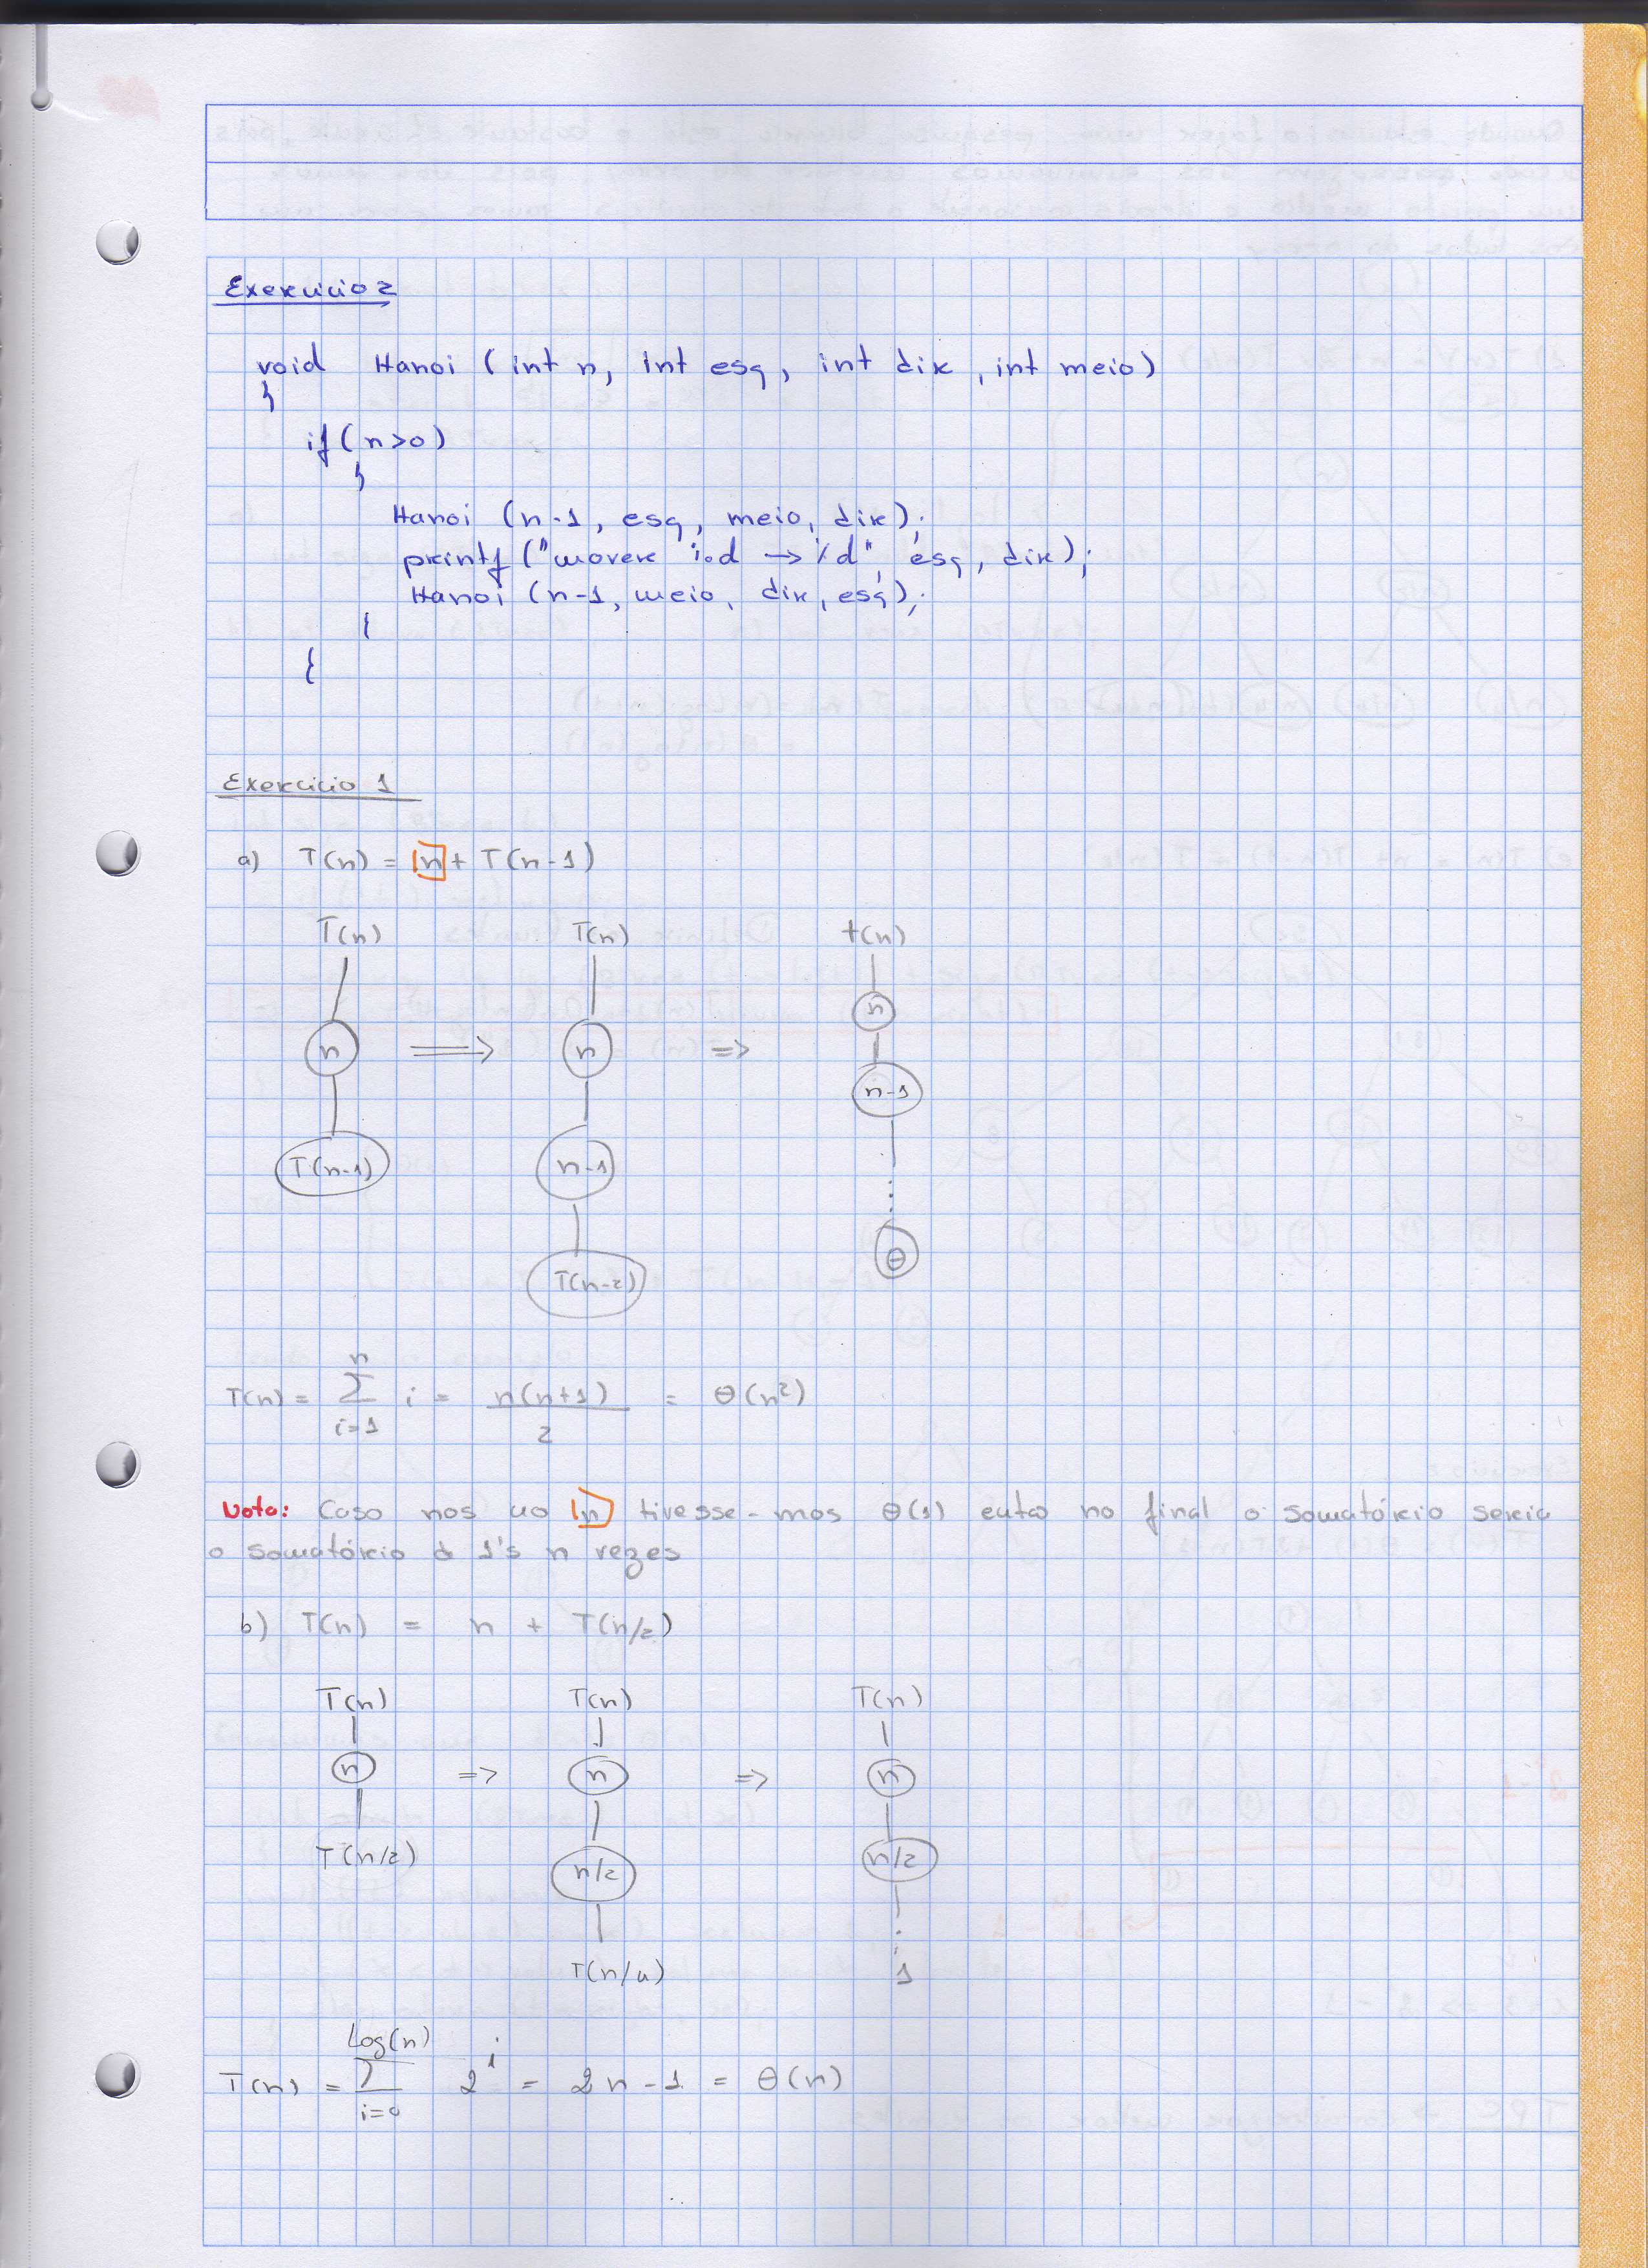 Exercicio 2
void Hanoi (int n, int esq, int dir, int meio)
}
if (n>0)
}
Hanoi (n-1, esq, meio, dir);
printf ("mover %d → %d", esq, dir);
Hanoi (n-1, meio, dir, esq);
{
{
Exercicio 1
a) T(n) = n + T(n-1)
T(n) T(n) t(n)
n
n ⟹ n =>
n-1
T(n-1) n-1
...
θ
T(n-2)
n
T(n) = Σ i = n(n+1) = θ(n²)
i=1 2
Nota: Caso nos ao n tivesse-mos θ(1) entao no final o somatório seria
o somatório de 1's n vezes
b) T(n) = n + T(n/2)
T(n) T(n) T(n)
n => n => n
T(n/2) n/2 n/2
T(n/4) 1
Log(n)
T(n) = Σ 2^i = 2n-1 = θ(n)
i=0